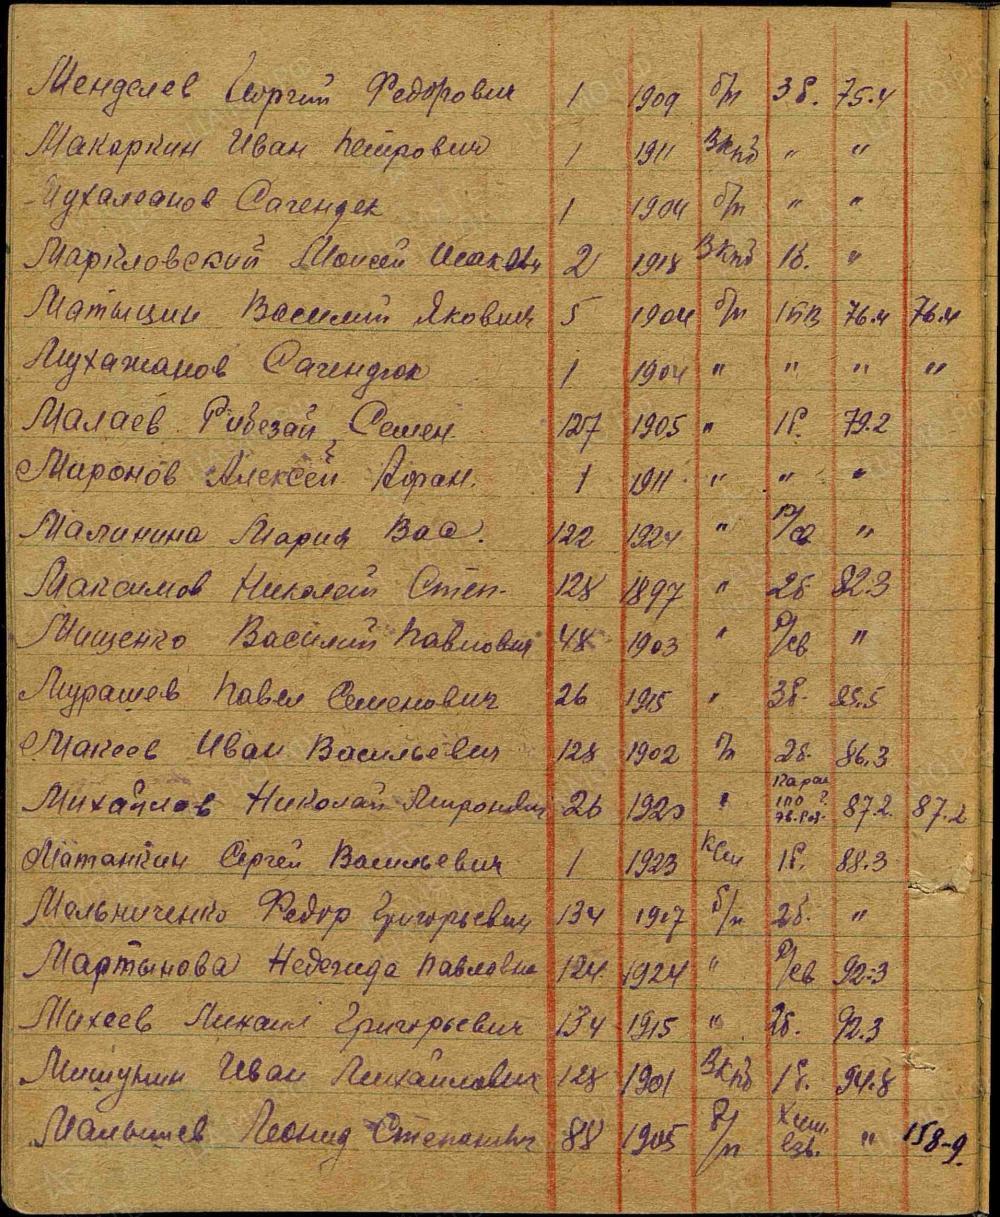 Менделев Георгий Федорович 1 1909 б/п 3б. 75.4
Макаркин Иван Петрович 1 1911 ВКпб " "
Мухалеанов Сагендек 1 1904 б/п " "
Маркловский Моисей Исакович 2 1918 ВКпб 1б. "
Матыцин Василий Якович 5 1904 б/п 76.4 76.4
Мухажанов Сагендюк 1 1904 " " " "
Малаев Рибезай Семен 127 1905 " 1б. 79.2
Миронов Алексей Афан. 1 1911 " " "
Малинина Мария Вас. 122 1924 " "
Максимов Николай Степ. 128 1897 " 2б 82.3
Мищенко Василий Павлович 48 1903 " Р/св "
Мурашев Павел Семенович 26 1915 " 3б. 85.5
Макеев Иван Васильевич 128 1902 б/п 2б. 86.3
Михайлов Николай Миронович 26 1923 " 87.2. 87.2
Матанкин Сергей Васильевич 1 1923 Ксм 1б. 88.3
Мельниченко Федор Григорьевич 134 1917 б/п 2б. "
Мартынова Недежида Павловна 124 1924 " Р/св 92.3
Михеев Михаил Григорьевич 134 1915 " 2б. 92.3
Мишунин Иван Михайлович 128 1901 ВКпб 1б. 94.8
Малышев Леонид Степанович 88 1905 б/п Хим. взв. " 158-9.